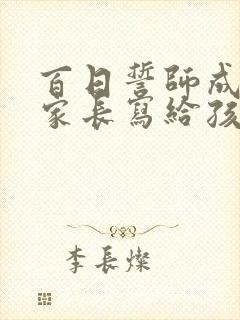 百日誓師成
家長寫給孩
李長燦